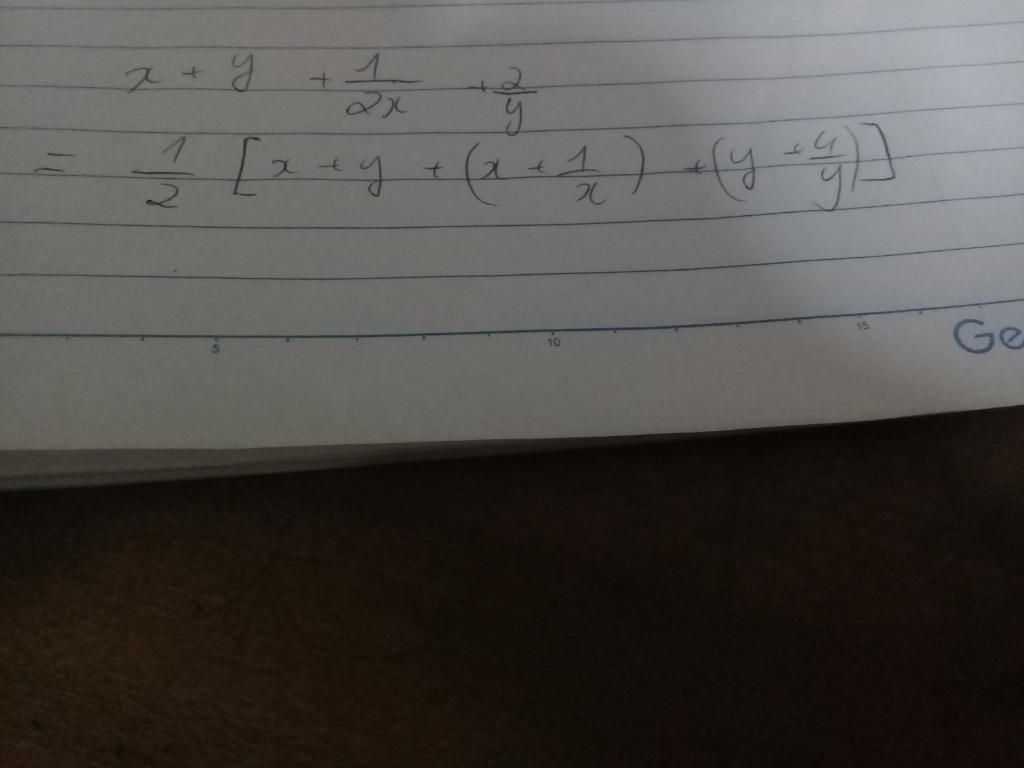 x + y + 1/2x + 2/y
= 1/2 [x + y + (x + 1/x) + (y + 4/y)]
5 10 15
Ge